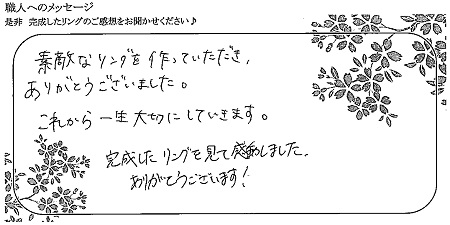 職人へのメッセージ
是非 完成したリングのご感想をお聞かせください♪
素敵なリングを作っていただき、
ありがとうございました。
これから一生大切にしていきます。
完成した リングを見て感動しました。
ありがとうございます!